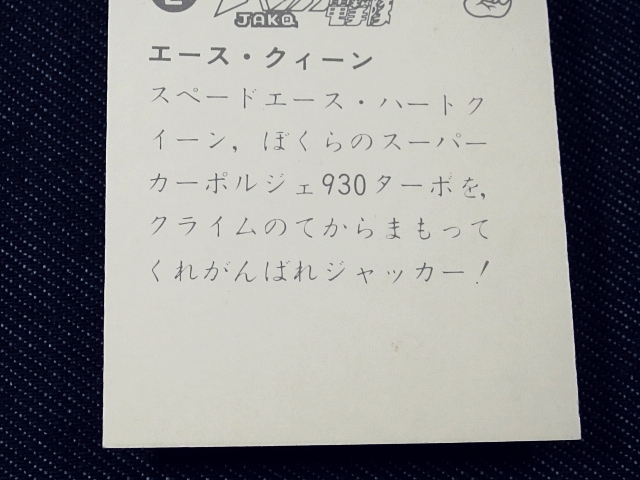 JAKQ 電撃隊
エース・クィーン
スペードエース・ハートク
イーン，ぼくらのスーパー
カーポルジェ930ターボを，
クライムのてからまもって
くれがんばれジャッカー！